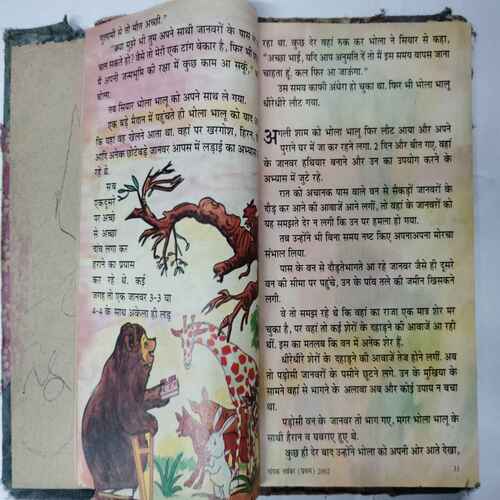 गुलामी से तो मौत अच्छी."
"क्या मुझे भी तुम अपने साथी जानवरों के पास
चल सकते हो? वैसे तो मेरी एक टांग बेकार है, फिर भी
मैं अपनी जन्मभूमि की रक्षा में कुछ काम आ सकूं,"
बोला.
तब सियार भोला भालू को अपने साथ ले गया.
एक बड़े मैदान में पहुंचते ही भोला भालू को याद
कि यहां वह खेलने आता था. वहां पर खरगोश, हिरन,
आदि अनेक छोटेबड़े जानवर आपस में लड़ाई का अभ्यास
रहे थे.
सब
एकदूसरे
पर अच्छे
से अच्छा
दांव लगा कर
हराने का प्रयास
कर रहे थे. कई
जगह तो एक जानवर 3-3 या
4-4 के साथ अकेला ही लड़
रहा था. कुछ देर वहां रुक कर भोला ने सियार से कहा,
"अच्छा भाई, यदि आप अनुमति दें तो मैं इस समय वापस जाना
चाहता हूं. कल फिर आ जाऊंगा."
उस समय काफी अंधेरा हो चुका था. फिर भी भोला भालू
धीरेधीरे लौट गया.
अगली शाम को भोला भालू फिर लौट आया और अपने
पुराने घर में जा कर रहने लगा. 2 दिन और बीत गए, वहां
के जानवर हथियार बनाने और उन का उपयोग करने के
अभ्यास में जुटे रहे.
रात को अचानक पास वाले वन से सैकड़ों जानवरों के
दौड़ कर आने की आवाजें आने लगीं, तो वहां के जानवरों को
यह समझते देर न लगी कि उन पर हमला हो गया.
तब उन्होंने भी बिना समय नष्ट किए अपनाअपना मोरचा
संभाल लिया.
पास के वन से दौड़तेभागते आ रहे जानवर जैसे ही दूसरे
वन की सीमा पर पहुंचे, उन के पांव तले की जमीन खिसकने
लगी.
वे तो समझ रहे थे कि वहां का राजा एक मात्र शेर मर
चुका है, पर वहां तो कई शेरों के दहाड़ने की आवाजें आ रही
थीं. इस का मतलब कि वन में अनेक शेर हैं.
धीरेधीरे शेरों के दहाड़ने की आवाजें तेज होने लगीं. अब
तो पड़ोसी जानवरों के पसीने छूटने लगे. उन के मुखिया के
सामने वहां से भागने के अलावा अब और कोई उपाय न बचा
था.
पड़ोसी वन के जानवर तो भाग गए, मगर भोला भालू के
साथी हैरान व घबराए हुए थे.
कुछ ही देर बाद उन्होंने भोला को अपनी ओर आते देखा,
चंपक नवंबर (प्रथम) 2002